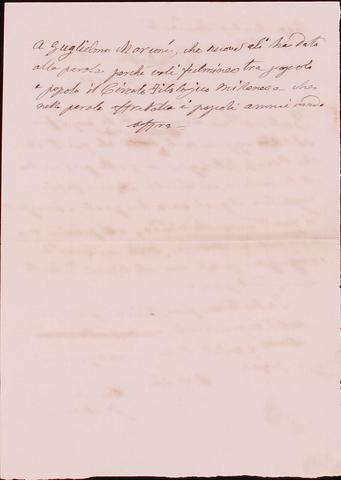 A Guglielmo Marconi, che nuove ali ha dato
alla parola perche voli fulminea tra popolo
e popolo il Circolo Filologico Milanese che
nella parola affratella i popoli
offre